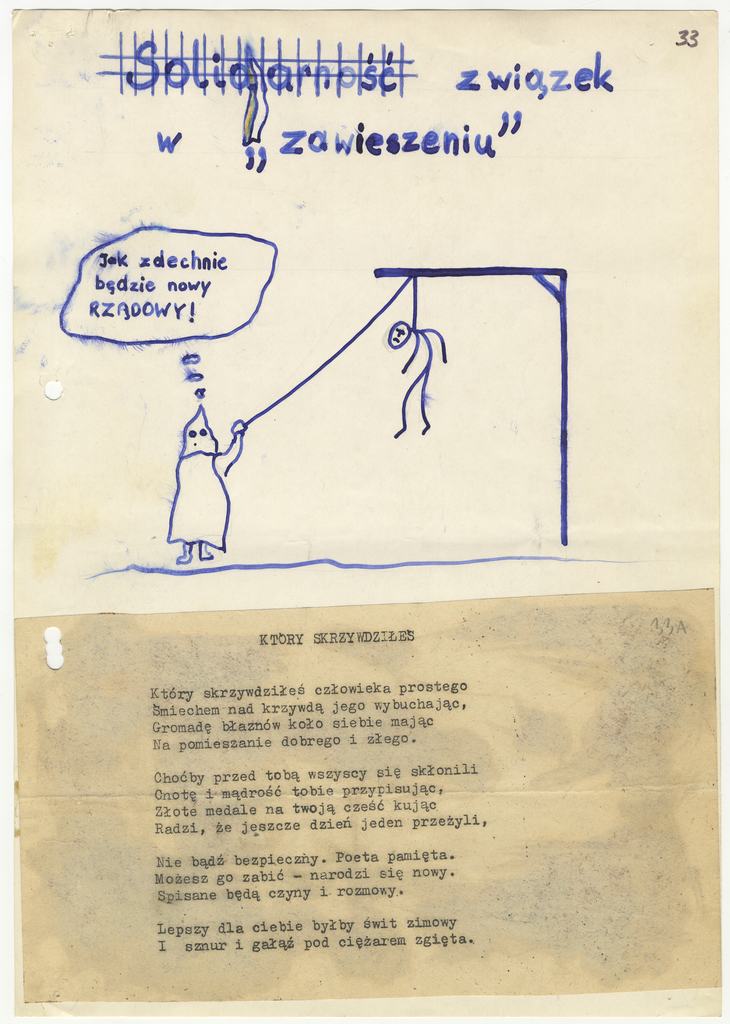 33
Solidarność związek
w „zawieszeniu”
Jak zdechnie
będzie nowy
RZĄDOWY!
33A
KTÓRY SKRZYWDZIŁEŚ
Który skrzywdziłeś człowieka prostego
Śmiechem nad krzywdą jego wybuchając,
Gromadę błaznów koło siebie mając
Na pomieszanie dobrego i złego.
Choćby przed tobą wszyscy się skłonili
Cnotę i mądrość tobie przypisując,
Złote medale na twoją cześć kując
Radzi, że jeszcze dzień jeden przeżyli,
Nie bądź bezpieczny. Poeta pamięta.
Możesz go zabić - narodzi się nowy.
Spisane będą czyny i rozmowy.
Lepszy dla ciebie byłby świt zimowy
I sznur i gałąź pod ciężarem zgięta.